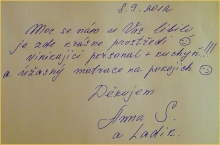 8.9.2012
Moc se nám u Vás líbilo
je zde krásné prostředí ☺
vynikající personál + kuchyň!!!
a úžasný matrace na pokojích ☺
Děkujem
Anna S.
a Ladik.